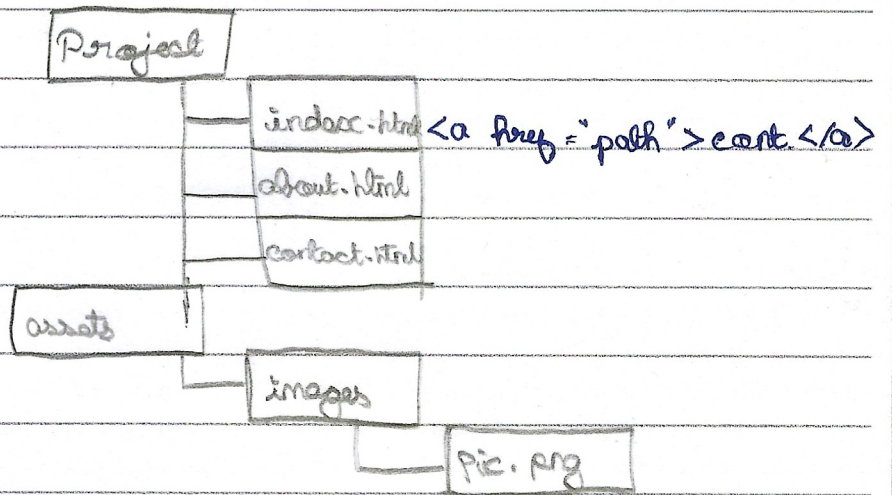 Project
index.html <a href="path">cont.</a>
about.html
contact.html
assets
images
pic.png